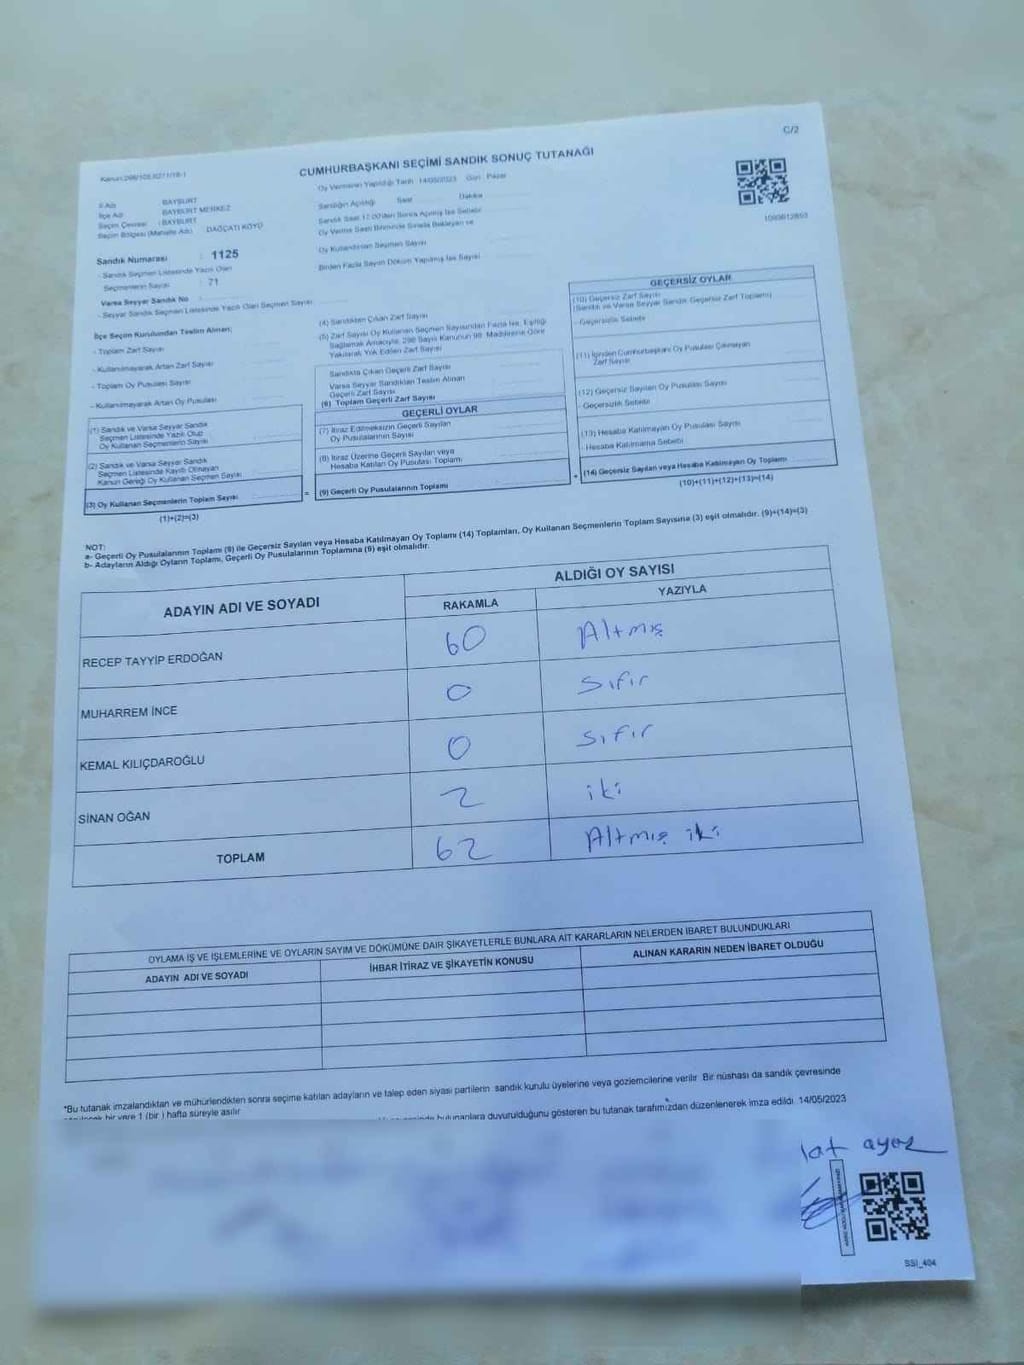 C/2
CUMHURBAŞKANI SEÇİMİ SANDIK SONUÇ TUTANAĞI
Oy Vermenin Yapıldığı Tarih : 14/05/2023 Gün : Pazar
İl Adı : BAYBURT
İlçe Adı : BAYBURT MERKEZ
Seçim Çevresi : BAYBURT
Seçim Bölgesi (Mahalle Adı) : DAĞÇATI KÖYÜ
Sandığın Açıldığı Saat Dakika
Sandık Saat 17.00'den Sonra Açılmış İse Sebebi
Oy Verme Saati Bitiminde Sırada Bekleyen ve
Oy Kullandırılan Seçmen Sayısı
Birden Fazla Sayım Döküm Yapılmış İse Sayısı
Sandık Numarası : 1125
- Sandık Seçmen Listesinde Yazılı Olan
Seçmenlerin Sayısı : 71
Varsa Seyyar Sandık No :
- Seyyar Sandık Seçmen Listesinde Yazılı Olan Seçmen Sayısı
İlçe Seçim Kurulundan Teslim Alınan;
- Toplam Zarf Sayısı
- Kullanılmayarak Artan Zarf Sayısı
- Toplam Oy Pusulası Sayısı
- Kullanılmayarak Artan Oy Pusulası
(1) Sandık ve Varsa Seyyar Sandık
Seçmen Listesinde Yazılı Olup
Oy Kullanan Seçmenlerin Sayısı
(2) Sandık ve Varsa Seyyar Sandık
Seçmen Listesinde Kayıtlı Olmayan
Kanun Gereği Oy Kullanan Seçmen Sayısı
(3) Oy Kullanan Seçmenlerin Toplam Sayısı
(1)+(2)=(3)
(4) Sandıktan Çıkan Zarf Sayısı
(5) Zarf Sayısı Oy Kullanan Seçmen Sayısından Fazla İse, Eşitliği
Sağlamak Amacıyla, 298 Sayılı Kanunun 98. Maddesine Göre
Yakılarak Yok Edilen Zarf Sayısı
Sandıkta Çıkan Geçerli Zarf Sayısı
Varsa Seyyar Sandıktan Teslim Alınan
Geçerli Zarf Sayısı
(6) Toplam Geçerli Zarf Sayısı
GEÇERLİ OYLAR
(7) İtiraz Edilmeksizin Geçerli Sayılan
Oy Pusulalarının Sayısı
(8) İtiraz Üzerine Geçerli Sayılan veya
Hesaba Katılan Oy Pusulası Toplamı
= (9) Geçerli Oy Pusulalarının Toplamı
GEÇERSİZ OYLAR
(10) Geçersiz Zarf Sayısı
(Sandık ve Varsa Seyyar Sandık Geçersiz Zarf Toplamı)
- Geçersizlik Sebebi
(11) İçinden Cumhurbaşkanı Oy Pusulası Çıkmayan
Zarf Sayısı
(12) Geçersiz Sayılan Oy Pusulası Sayısı
- Geçersizlik Sebebi
(13) Hesaba Katılmayan Oy Pusulası Sayısı
- Hesaba Katılmama Sebebi
+ (14) Geçersiz Sayılan veya Hesaba Katılmayan Oy Toplamı
(10)+(11)+(12)+(13)=(14)
NOT:
a- Geçerli Oy Pusulalarının Toplamı (9) ile Geçersiz Sayılan veya Hesaba Katılmayan Oy Toplamı (14) Toplamları, Oy Kullanan Seçmenlerin Toplam Sayısına (3) eşit olmalıdır. (9)+(14)=(3)
b- Adayların Aldığı Oyların Toplamı, Geçerli Oy Pusulalarının Toplamına (9) eşit olmalıdır.
ADAYIN ADI VE SOYADI ALDIĞI OY SAYISI
RAKAMLA YAZIYLA
RECEP TAYYİP ERDOĞAN 60 Altmış
MUHARREM İNCE 0 Sıfır
KEMAL KILIÇDAROĞLU 0 Sıfır
SİNAN OĞAN 2 iki
TOPLAM 62 Altmış iki
OYLAMA İŞ VE İŞLEMLERİNE VE OYLARIN SAYIM VE DÖKÜMÜNE DAİR ŞİKAYETLERLE BUNLARA AİT KARARLARIN NELERDEN İBARET BULUNDUKLARI
ADAYIN ADI VE SOYADI İHBAR İTİRAZ VE ŞİKAYETİN KONUSU ALINAN KARARIN NEDEN İBARET OLDUĞU
*Bu tutanak imzalandıktan ve mühürlendikten sonra seçime katılan adayların ve talep eden siyasi partilerin sandık kurulu üyelerine veya gözlemcilerine verilir. Bir nüshası da sandık çevresinde
bir yere 1 (bir) hafta süreyle asılır.
bulunanlara duyurulduğunu gösteren bu tutanak tarafımızdan düzenlenerek imza edildi. 14/05/2023
SSI_404